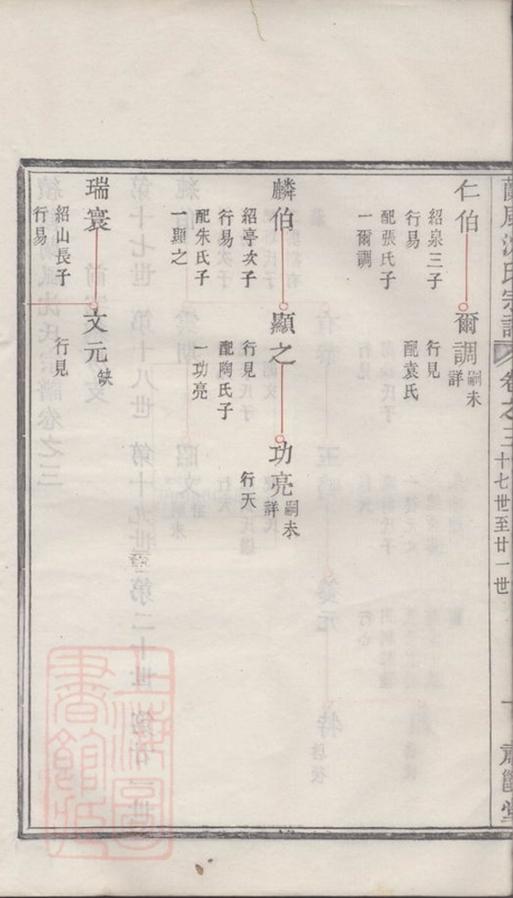 沈氏宗譜 卷之三 十七世至廿一世
仁伯
紹泉三子
行易
配張氏子
一爾調
爾調 嗣未詳
行見
配袁氏
麟伯
紹亭次子
行易
配朱氏子
一顯之
顯之
行見
配陶氏子
一功亮
功亮 嗣未詳
行天
瑞寰
紹山長子
行易
文元 缺
行見
上海圖書館藏